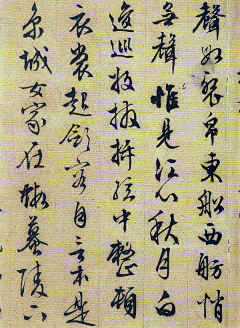 聲如裂帛東船西舫悄
無聲惟見江心秋月白
逡巡放撥插絃中整頓
衣裳起斂容自言本是
京城女家住蝦蟇陵下